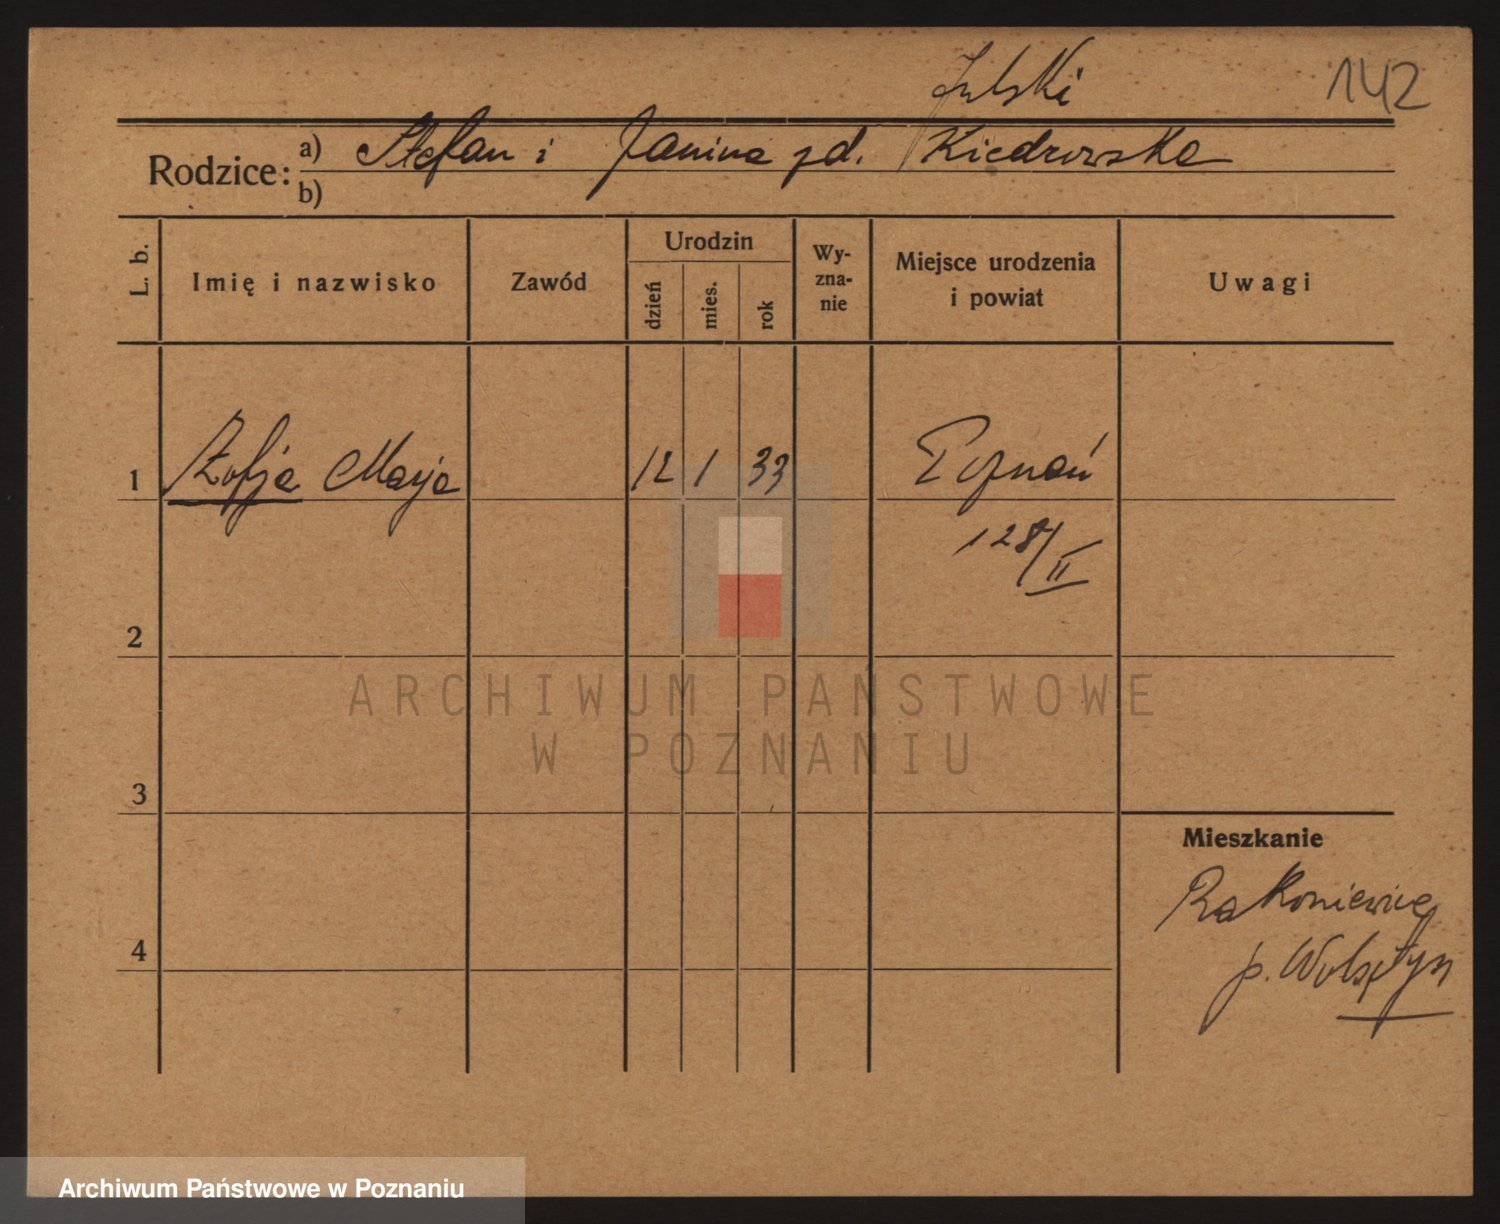 Julski 142
Rodzice: a) Stefan i Janina zd. Kiedrowska
b)
L. b. Imię i nazwisko Zawód Urodzin dzień mies. rok Wy-zna-nie Miejsce urodzenia i powiat Uwagi
1 Zofja Marja 12 1 33 Poznań
128/II
2
ARCHIWUM PAŃSTWOWE
W POZNANIU
3
Mieszkanie
Rakoniewice
4
p. Wolsztyn
Archiwum Państwowe w Poznaniu